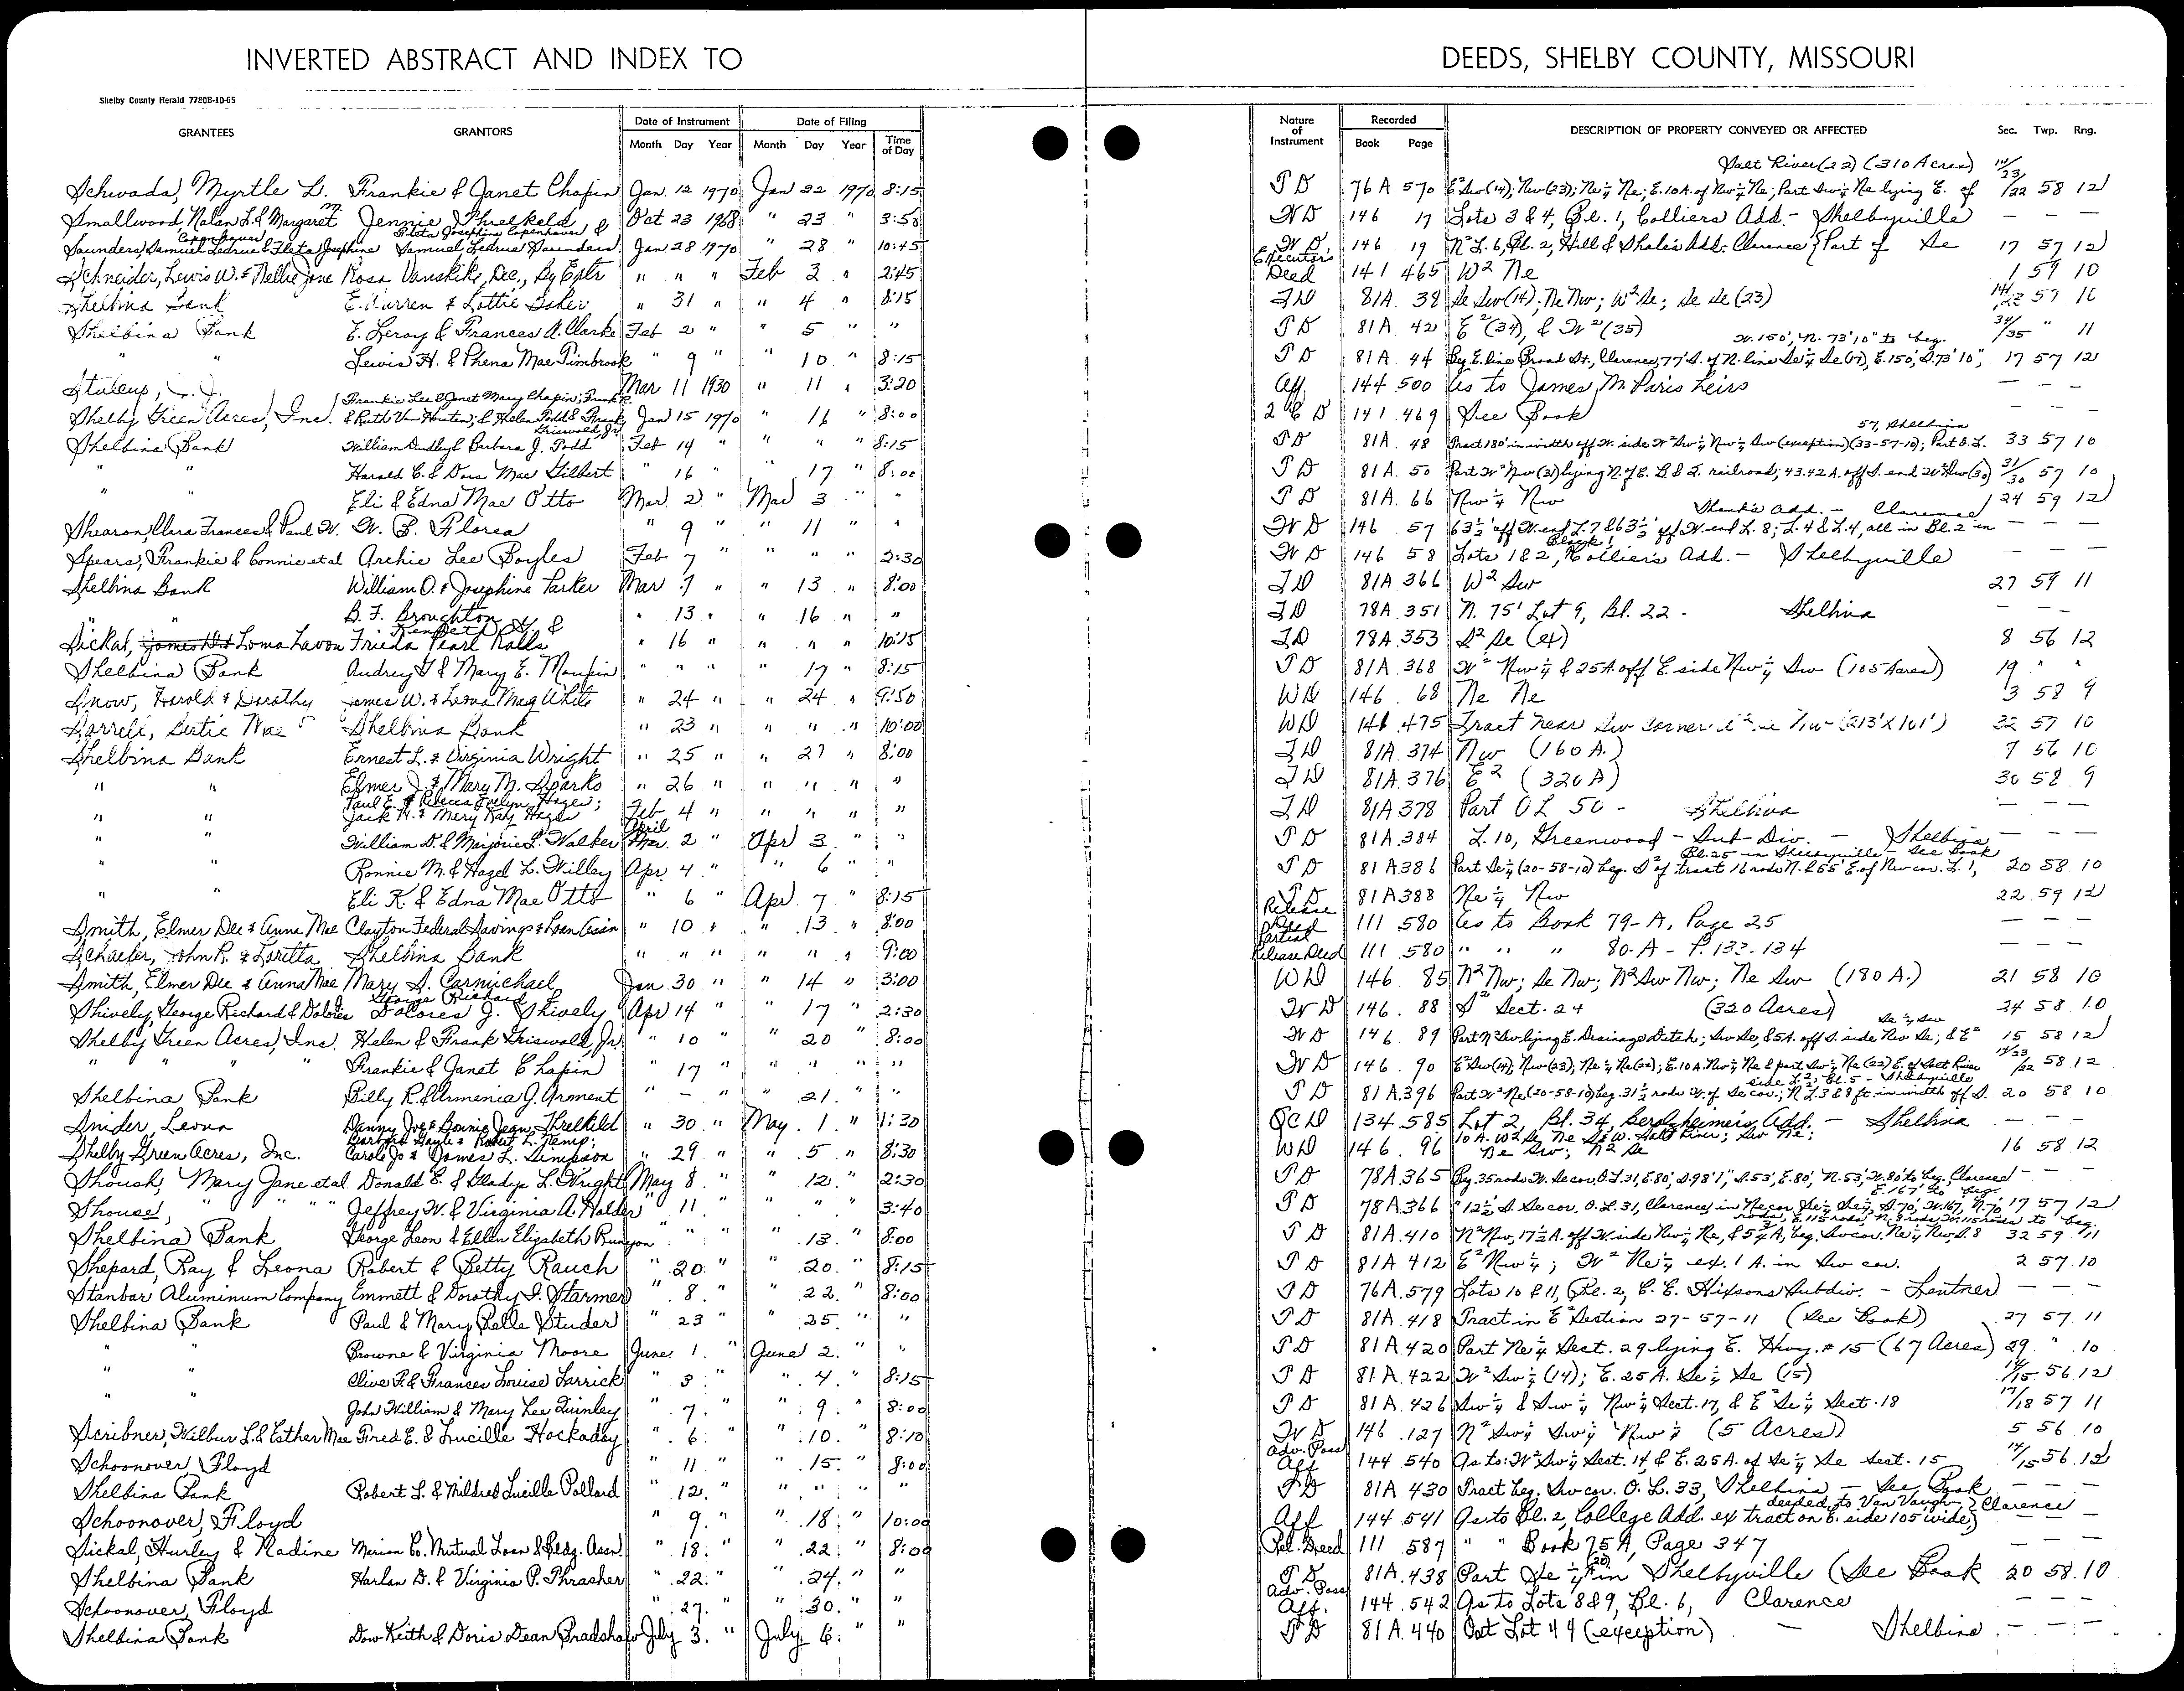 INVERTED ABSTRACT AND INDEX TO DEEDS, SHELBY COUNTY, MISSOURI
Shelby County Herald 7780B-10-65
GRANTEES GRANTORS Date of Instrument Month Day Year Date of Filing Month Day Year Time of Day Nature of Instrument Recorded Book Page DESCRIPTION OF PROPERTY CONVEYED OR AFFECTED Sec. Twp. Rng.
Salt River (22) (310 Acres) 14/23
Schwada, Myrtle L. Frankie & Janet Chapin Jan. 12 1970 Jan 22 1970 8:15 T D 76A 570 E² Sw (14); Nw (23); Ne ¼ Ne; E. 10 A. of Nw ¼ Ne; Part Sw ¼ Ne lying E. of /22 58 12
Smallwood, Nolan L. & Margaret M. Jennie Threlkeld Oct 23 1968 " 23 " 3:50 W D 146 17 Lots 3 & 4, Bl. 1, Colliers Add. - Shelbyville — — —
Saunders, Samuel Ledrue & Fleta Josephine Copenhaver Fleta Josephine Copenhaver & Samuel Ledrue Saunders Jan 28 1970 " 28 " 10:45 W D 146 19 N² L. 6, Bl. 2, Hill & Shale's Add. Clarence & Part of Se 17 57 12
Schneider, Lewis W. & Nellie Jane Rosa Vanskike, Dec., By Extr " " " Feb 2 " 2:45 Executor's Deed 141 465 W² Ne 1 59 10
Shelbina Bank E. Warren & Lottie Baker " 31 " " 4 " 8:15 T D 81A 38 Se Sw (14); Ne Nw; W² Se; Se Se (23) 14/23 57 10
Shelbina Bank E. Leroy & Frances A. Clarke Feb 2 " " 5 " " T D 81A 42 E² (34), & W² (35) 34/35 " 11
W. 150', N. 73'10" to beg.
" " Lewis H. & Phena Mae Timbrook " 9 " " 10 " 8:15 T D 81A 44 Beg. E. line Broad St., Clarence, 77' S. of N. line Se ¼ Se (17), E. 150', S. 73'10", 17 57 12
Mar 11 1930 " 11 " 3:20 Aff. 144 500 As to James M. Paris heirs — — —
Shelby Green Acres, Inc. Frankie Lee & Janet Mary Chapin; Frank R. & Ruth Van Houten; & Helen Todd & Frank Griswold, Jr. Jan 15 1970 " 16 " 8:00 2 C D 141 469 See Book — — —
57, Shelbina
Shelbina Bank William Dudley & Barbara J. Todd Feb 14 " " " " 8:15 T D 81A 48 Tract 180' in width off W. side W² Sw ¼ Nw ¼ Sw (exception) (33-57-10); Part O.L. 33 57 10
" " Harold C. & Dora Mae Gilbert " 16 " 17 " 8:00 T D 81A 50 Part W² Nw (31) lying N. of railroad; 43.42 A. off S. end W² Sw (30) 31/30 57 10
" " Eli & Edna Mae Otto Mar 2 " Mar 3 " " T D 81A 66 Nw ¼ Nw 24 59 12
Shank's Add. - Clarence
Shearon, Clara Frances & Paul W. W. B. Florea " 9 " 11 " W D 146 57 63½' off W. end L. 7 & 63½' off W. end L. 8; L. 4 & L. 4, all in Bl. 2 in — — —
Spears, Frankie & Connie et al Archie Lee Boyles Feb 7 " " " " 2:30 W D 146 58 Lots 1 & 2, Block 1 Colliers Add. - Shelbyville — — —
Shelbina Bank William O. & Josephine Parker Mar 7 " 13 " 8:00 T D 81A 366 W² Sw 27 59 11
" " B. F. Broughton " 13 " " 16 " " T D 78A 351 N. 75' Lot 9, Bl. 22 - Shelbina — — —
Sickal, Loma Lavon Kenneth W. & Frieda Pearl Ralls " 16 " " " " 10:15 T D 78A 353 S² Se (ex) 8 56 12
Shelbina Bank Audrey G. & Mary E. Maupin " " " " 17 " 8:15 T D 81A 368 W² Nw ¼ & 25 A off E. side Nw ¼ Sw (105 Acres) 19 " "
Snow, Harold & Dorothy James W. & Leona Mae White " 24 " " 24 " 9:50 W D 146 68 Ne Ne 3 58 9
Sarrell, Bertie Mae Shelbina Bank " 23 " " " " 10:00 W D 146 475 Tract near Sw corner Nw (213' X 101') 32 57 10
Shelbina Bank Ernest L. & Virginia Wright " 25 " " 27 " 8:00 T D 81A 374 Nw (160 A.) 7 56 10
" " Elmer J. & Mary M. Sparks " 26 " " " " " T D 81A 376 E² (320 A) 30 58 9
" " Paul E. & Rebecca Evelyn Hager; Jack H. & Mary Kay Hager Feb 4 " " " " " T D 81A 378 Part O L 50 - Shelbina — — —
" " William D. & Marjorie L. Walker April 2 " Apr 3 " " T D 81A 384 L. 10, Greenwood - Sub-Div. - Shelbina — — —
Bl. 25 in Shelbyville - See Book
" " Ronnie M. & Hazel L. Willey Apr. 4 " " 6 " " T D 81A 386 Part Se ¼ (20-58-10) beg. S² of tract 16 rods N. & 55' E. of Nw cor. L. 1, 20 58 10
" " Eli K. & Edna Mae Otto " 6 " Apr 7 " 8:15 T D 81A 388 Ne ¼ Nw 22 59 12
Smith, Elmer Dee & Anna Mae Clayton Federal Savings & Loan Assn " 10 " " 13 " 8:00 Release Deed 111 580 As to Book 79-A, Page 25 — — —
Schaefer, John R. & Loretta Shelbina Bank " " " " " " 9:00 Partial Release Deed 111 580 " " " 80-A - P. 133-134 — — —
Smith, Elmer Dee & Anna Mae Mary S. Carmichael Jan. 30 " " 14 " 3:00 W D 146 85 N² Nw; Se Nw; N² Sw Nw; Ne Sw (180 A.) 21 58 10
Shively, George Richard & Dolores J. George Richard & Dolores J. Shively Apr 14 " " 17 " 2:30 W D 146 88 S² Sect. 24 (320 Acres) 24 58 10
Se ¼ Sw
Shelby Green Acres, Inc. Helen & Frank Griswold, Jr. " 10 " 20 " 8:00 W D 146 89 Part N² Sw lying E. Drainage Ditch; Sw Se, & 5 A. off S. side Nw Se; & E² 15 58 12
" " " " Frankie & Janet Chapin " 17 " " " " W D 146 90 E² Sw (14); Nw (23); Ne ¼ Ne (22); E. 10 A. Nw ¼ Ne & part Sw ¼ Ne (22) E. of Salt River 14/23/22 58 12
side L. 2, Bl. 5 - Shelbyville
Shelbina Bank Billy R. & Armenia J. Arment " — " " 21 " " T D 81A 396 Part W² Ne (20-58-10) beg. 31½ rods W. of Se cor.; N L. 3 & 8 ft. in width off S. 20 58 10
Snider, Leona Danny Joe & Bonnie Jean Threlkeld " 30 " May 1 " 1:30 QC D 134 585 Lot 2, Bl. 34, Gerolzheimer's Add. - Shelbina — — —
Shelby Green Acres, Inc. Barbara Gayle & Robert L. Kemp; Carole Jo & James L. Simpson " 29 " " 5 " 8:30 W D 146 96 10 A. W² Se Ne W. Salt River; Sw Ne; Ne Sw; N² Se 16 58 12
Shoush, Mary Jane et al Donald E. & Gladys L. Wright May 8 " " 12 " 2:30 T D 78A 365 Beg. 35 rods W. Se cor. O.L. 31, E. 80', S. 98'1", S. 53', E. 80', N. 53', W. 80' to beg. Clarence — — —
E. 167' to beg.
Shouse, " " " Jeffrey W. & Virginia A. Holder " 11 " " " " 3:40 T D 78A 366 " 12½ S. Se cor. O.L. 31, Clarence, in Ne cor. Se ¼ Se ¼, S. 70', W. 167', N. 70', 17 57 12
rods, E. 115 rods, N. 8 rods, W. 115 rods to beg.
Shelbina Bank George Leon & Ellen Elizabeth Runyon " " " " 13 " 8:00 T D 81A 410 N² Nw, 17½ A. off W. side Nw ¼ Ne, & 5¾ A, beg. Sw cor. Ne ¼ Nw S. 8 32 59 11
Shepard, Ray & Leona Robert & Betty Rauch " 20 " " 20 " 8:15 T D 81A 412 E² Nw ¼; W² Ne ¼ ex. 1 A. in Sw cor. 2 57 10
Stanbar Aluminum Company Emmett & Dorothy I. Starmer " 8 " " 22 " 8:00 T D 76A 579 Lots 10 & 11, Bl. 2, C. E. Hixsons Subdiv. - Lentner — — —
Shelbina Bank Paul & Mary Belle Studer " 23 " 25 " " T D 81A 418 Tract in E² Section 27-57-11 (See Book) 27 57 11
" " Browne & Virginia Moore June 1 " June 2 " " T D 81A 420 Part Ne ¼ Sect. 29 lying E. Hwy. # 15 (67 Acres) 29 " 10
" " Clive P. & Frances Louise Larrick " 3 " " 4 " 8:15 T D 81A 422 W² Sw ¼ (14); E. 25 A. Se ¼ Se (15) 14/15 56 12
" " John William & Mary Lee Quinley " 7 " " 9 " 8:00 T D 81A 426 Sw ¼ & Sw ¼ Nw ¼ Sect. 17, & E² Se ¼ Sect. 18 17/18 57 11
Scribner, Wilbur L. & Esther Mae Fred E. & Lucille Hockaday " 6 " " 10 " 8:10 W D 146 127 N² Sw ¼ Sw ¼ Nw ¼ (5 Acres) 5 56 10
Schoonover, Floyd " 11 " " 15 " 8:00 Adv. Poss Aff 144 540 As to: W² Sw ¼ Sect. 14 & E. 25 A. of Se ¼ Se Sect. 15 14/15 56 12
Shelbina Bank Robert L. & Mildred Lucille Pollard " 12 " " " " " T D 81A 430 Tract beg. Sw cor. O. L. 33, Shelbina - See Book — — —
deeded to Van Vaughn
Schoonover, Floyd " 9 " " 18 " 10:00 Aff 144 541 As to Bl. 2, College Add. ex tract on E. side 105 wide, Clarence — — —
Sickal, Hurley & Nadine Marion Co. Mutual Loan & Bldg. Assn. " 18 " " 22 " 8:00 Rel. Deed 111 587 " " Book 75A, Page 347 — —
Shelbina Bank Harlan D. & Virginia P. Thrasher " 22 " " 24 " " T D 81A 438 Part Se ¼ (20) in Shelbyville (See Book 20 58 10
Schoonover, Floyd " 27 " " 30 " " Adv. Poss Aff. 144 542 As to Lots 8 & 9, Bl. 6, Clarence — — —
Shelbina Bank Dow Keith & Doris Dean Bradshaw July 3 " July 6 " " T D 81A 440 Out Lot 44 (exception) — Shelbina — — —